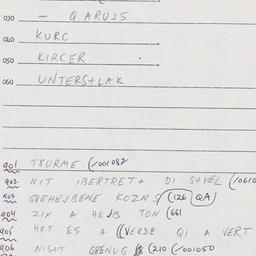 030 — QARUIS
040 KURC
050 KIRCER
060 UNTERSTLAK
901 TSURME (/001082
902 NIT IBERTRETT DI STVEL (/0610
903 GEHEJBENE KOZN (126 QA)
904 ZIX A HEJB TON (661
905 HOT ES A ((VERDE QI A VERT
906 NIST GENUG (210 (/001050